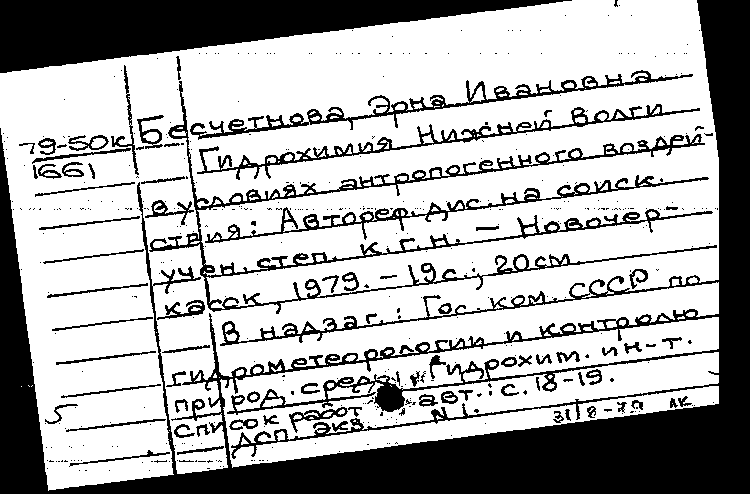 79-50к Бесчетнова, Эрна Ивановна
1661 Гидрохимия Нижней Волги
в условиях антропогенного воздей-
ствия: Автореф. дис. на соиск.
учен. степ. к.г.н. – Новочер-
касск, 1979. – 19 с.; 20 см.
В надзаг.: Гос. ком. СССР по
гидрометеорологии и контролю
природ. среды, Гидрохим. ин-т.
5 Список работ авт.: с. 18-19.
ДСП. экз. N 1.
31/8-79 АК